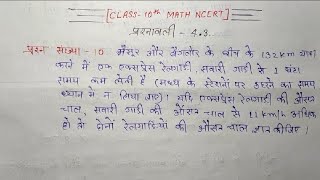 [CLASS-10th MATH NCERT]
प्रश्नावली - 4.3
प्रश्न संख्या - 10 मैसूर और बैंगलोर के बीच के 132km यात्रा
करने में एक एक्सप्रेस रेलगाड़ी, सवारी गाड़ी से 1 घंटा
समय कम लेती है (मध्य के स्टेशनों पर ठहरने का समय
ध्यान में न लिया जाए)। यदि एक्सप्रेस रेलगाड़ी की औसत
चाल, सवारी गाड़ी की औसत चाल से 11km/h अधिक
हो तो दोनों रेलगाड़ियों की औसत चाल ज्ञात कीजिए।